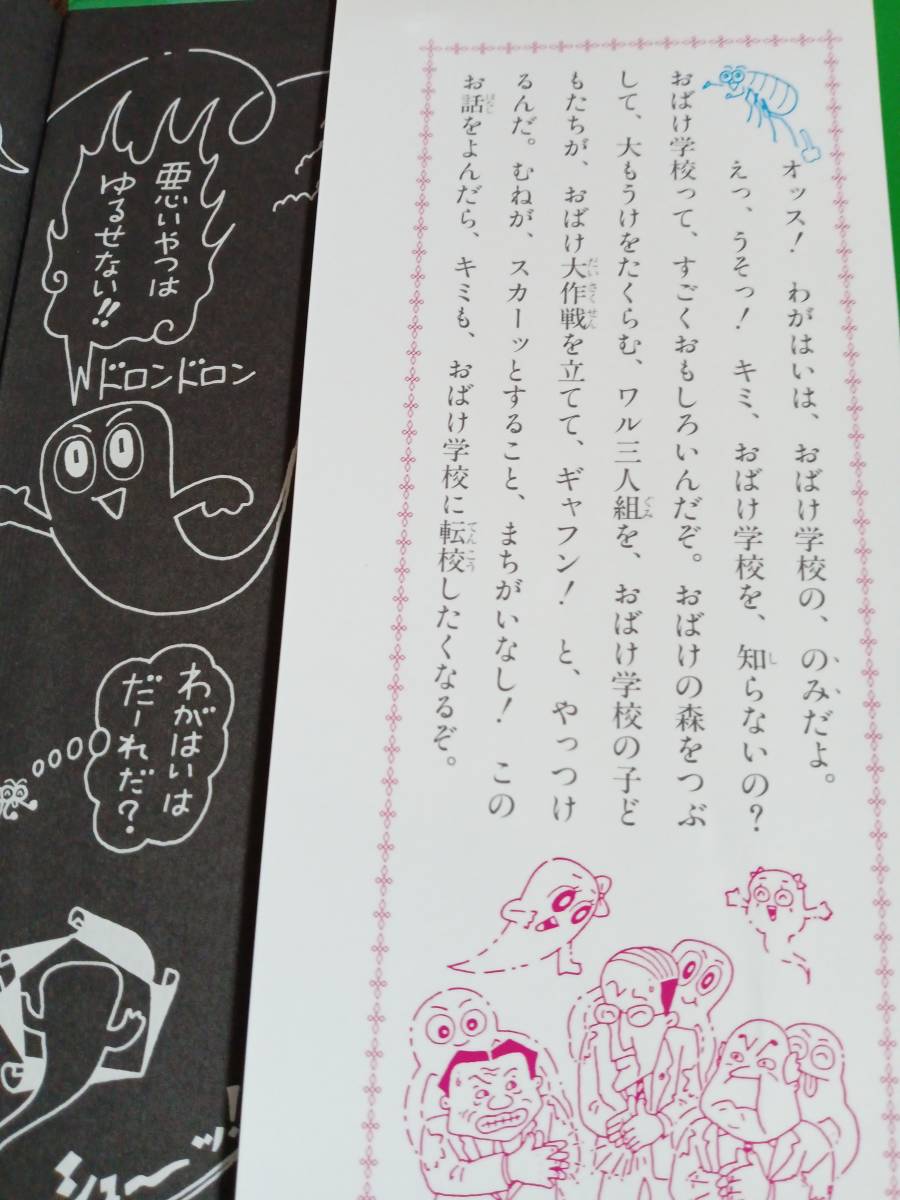 オッス！　わがはいは、おばけ学校の、のみだよ。
えっ、うそっ！　キミ、おばけ学校を、知らないの？
おばけ学校って、すごくおもしろいんだぞ。おばけの森をつぶ
して、大もうけをたくらむ、ワル三人組を、おばけ学校の子ど
もたちが、おばけ大作戦を立てて、ギャフン！　と、やっつけ
るんだ。むねが、スカーッとすること、まちがいなし！　この
お話をよんだら、キミも、おばけ学校に転校したくなるぞ。
悪いやつは
ゆるせない!!
ドロンドロン
わがはいは
だーれだ？
シュ〜ッ!